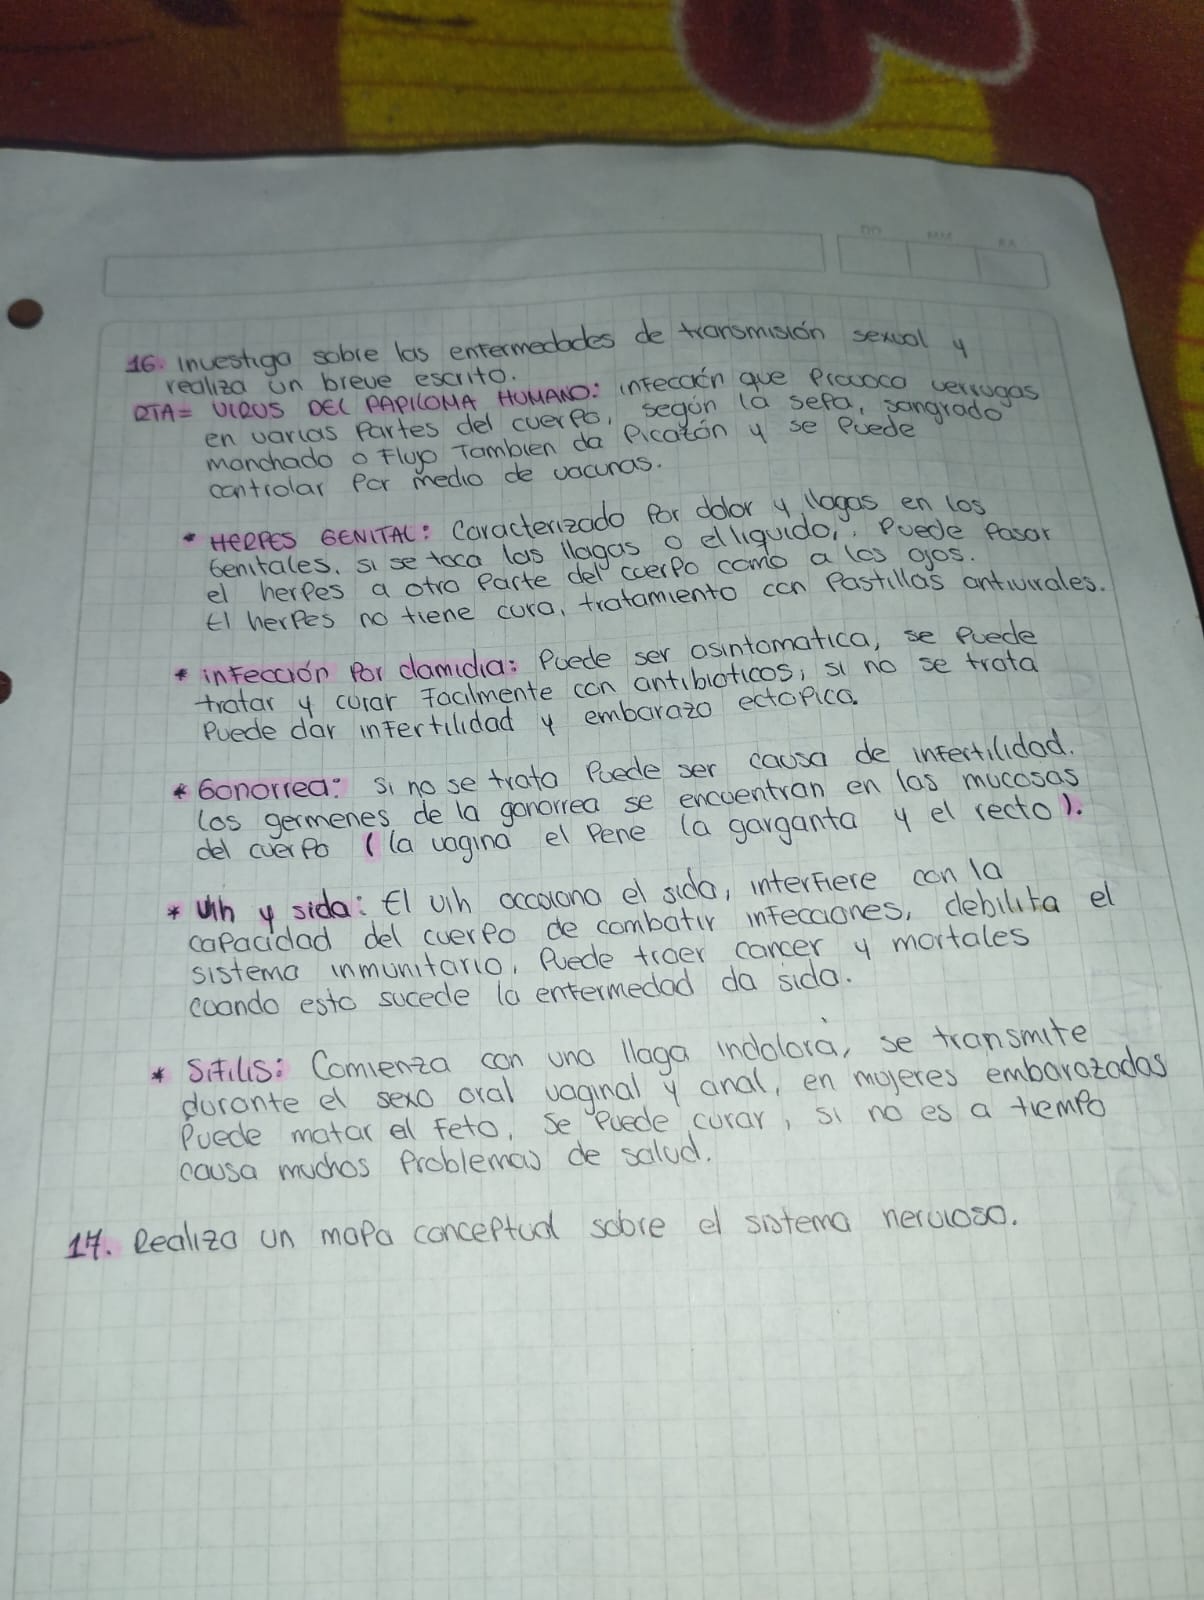 DD MM AA
16. investiga sobre las enfermedades de transmisión sexual y
realiza un breve escrito.
RTA= VIRUS DEL PAPILOMA HUMANO: infección que Provoca verrugas
en varias Partes del cuerpo, según la sepa, sangrado
manchado o Flujo Tambien da Picazón y se Puede
controlar Por medio de vacunas.
* HERPES GENITAL: Caracterizado Por dolor y llagas en los
Genitales. si se toca las llagas o el liquido, Puede Pasar
el herpes a otra Parte del cuerpo como a los ojos.
El herpes no tiene cura, tratamiento con Pastillas antivirales.
* infección Por clamidia: Puede ser asintomatica, se Puede
tratar y curar Facilmente con antibioticos, si no se trata
Puede dar infertilidad y embarazo ectopico.
* Gonorrea: si no se trata Puede ser causa de infertilidad.
los germenes de la gonorrea se encuentran en las mucosas
del cuerpo (la vagina el Pene la garganta y el recto).
* Vih y sida: El vih occaiona el sida, interfiere con la
capacidad del cuerpo de combatir infecciones, debilita el
sistema inmunitario, Puede traer cancer y mortales
cuando esto sucede la enfermedad da sida.
* SiFilis: Comienza con una llaga indolora, se transmite
durante el sexo oral vaginal y anal, en mujeres embarazadas
Puede matar el Feto, Se Puede curar, si no es a tiempo
causa muchos Problemas de salud.
17. Realiza un mapa conceptual sobre el sistema nervioso.